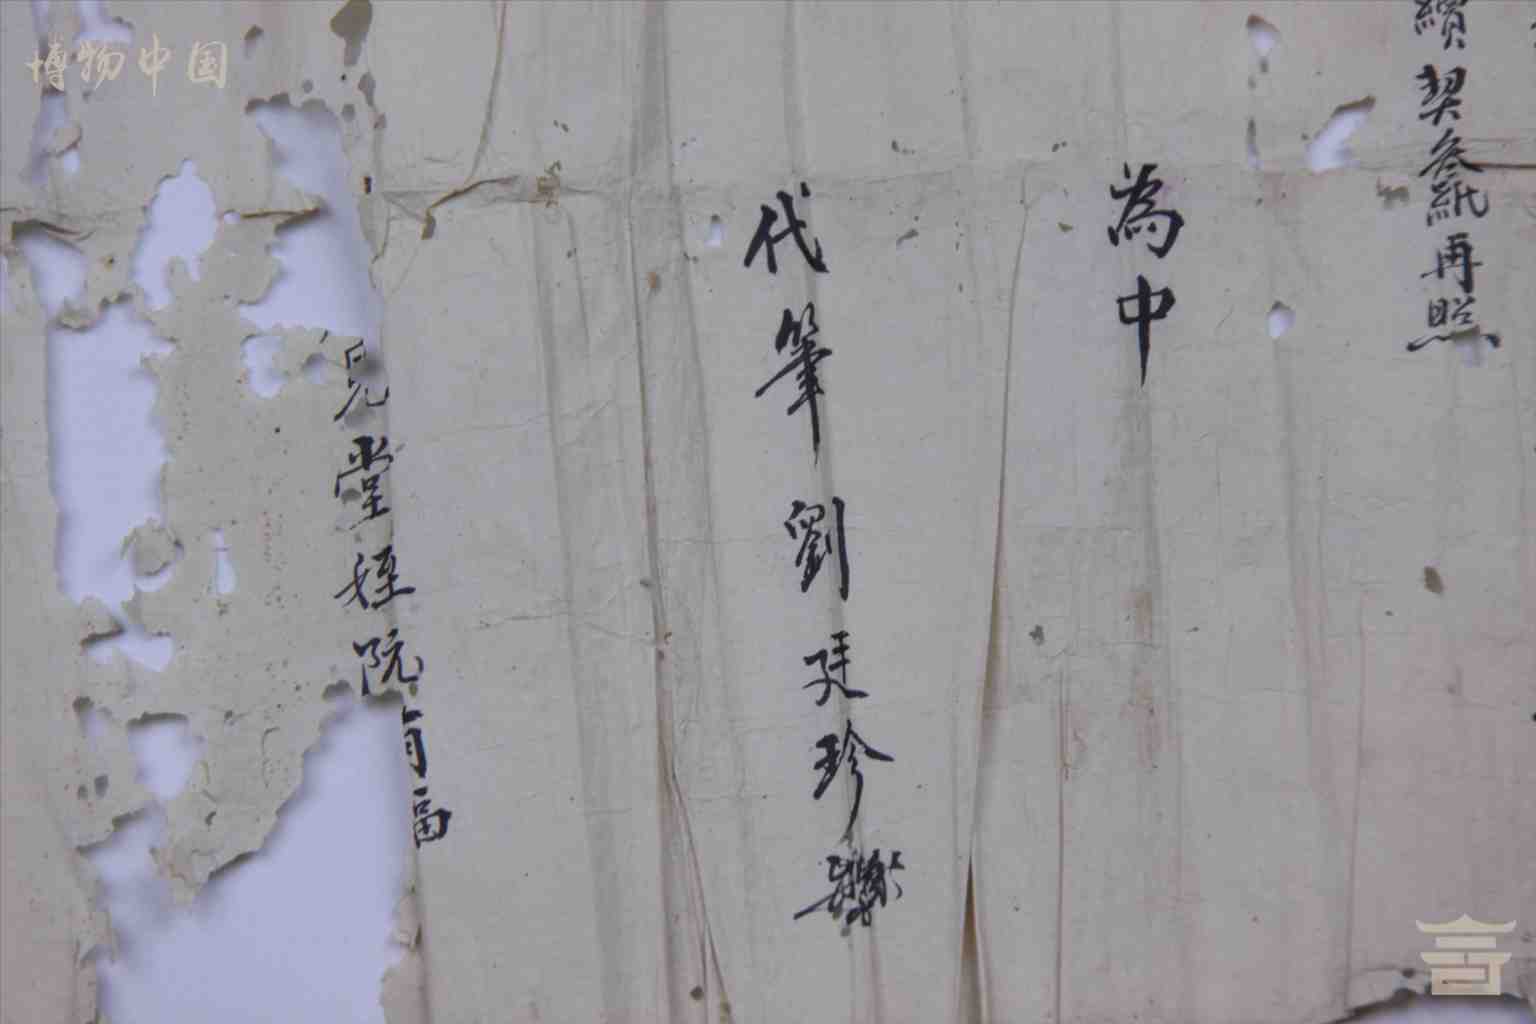 博物中国
續契叁紙再照
為中
代筆劉廷珍
見堂姪阮有福